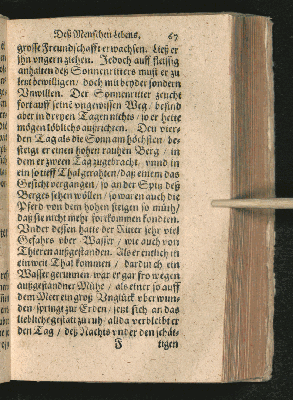 Deß Menschen lebens. 67
grosse Freundschafft erwachsen. Ließ er
jhn vngern ziehen. Jedoch auff fleissig
anhalten deß Sonnenritters must er zu
letst bewilligen / doch mit beyder sondern
Vnwillen. Der Sonnenritter zeucht
fort auff seinē vngewissen Weg / befind
aber in dreyen Tagen nichts / so er hette
mögen löblichs außrichten. Den vier-
den Tag als die Sonn am höchsten / be-
steigt er einen hohen rauhen Berg / in
dem er zween Tag zugebracht / vnnd in
ein so tieff Thal gerahten / daß einem das
Gesicht vergangen / so an der Spitz deß
Berges sehen wöllen / so waren auch die
Pferd von dem hohen steigen so müth /
daß sie nicht mehr fortkommen kondten.
Vnder dessen hatte der Ritter sehr viel
Gefahrs vber Wasser / wie auch von
Thieren außgestanden. Als er entlich in
ein weit Thal kommen / dardurch ein
Wasser gerunnen / war er gar fro wegen
außgestandner Mühe / als einer so auff
dem Meer ein groß Vnglück vberwun-
den / springt zur Erden / setzt sich an das
liebliche gestatt zu ruh / allda verbleibt er
den Tag / deß Nachts vnder den schät-
J tigen